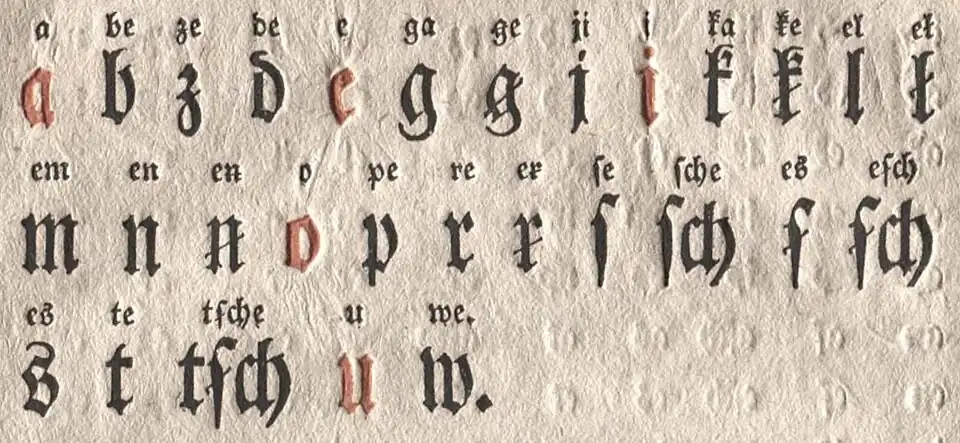 a be ze de e ga ꞡe ji i ka ꞣe el eł
a b z d e g ꞡ j i k ꞣ l ł
em en eꞥ o pe re eꞧ ſe ſche eꞩ eẜch
m n ꞥ o p r ꞧ ſ ſch ẜ ẜch
eꞩ te tẜche u we.
ꞩ t tẜch u w.